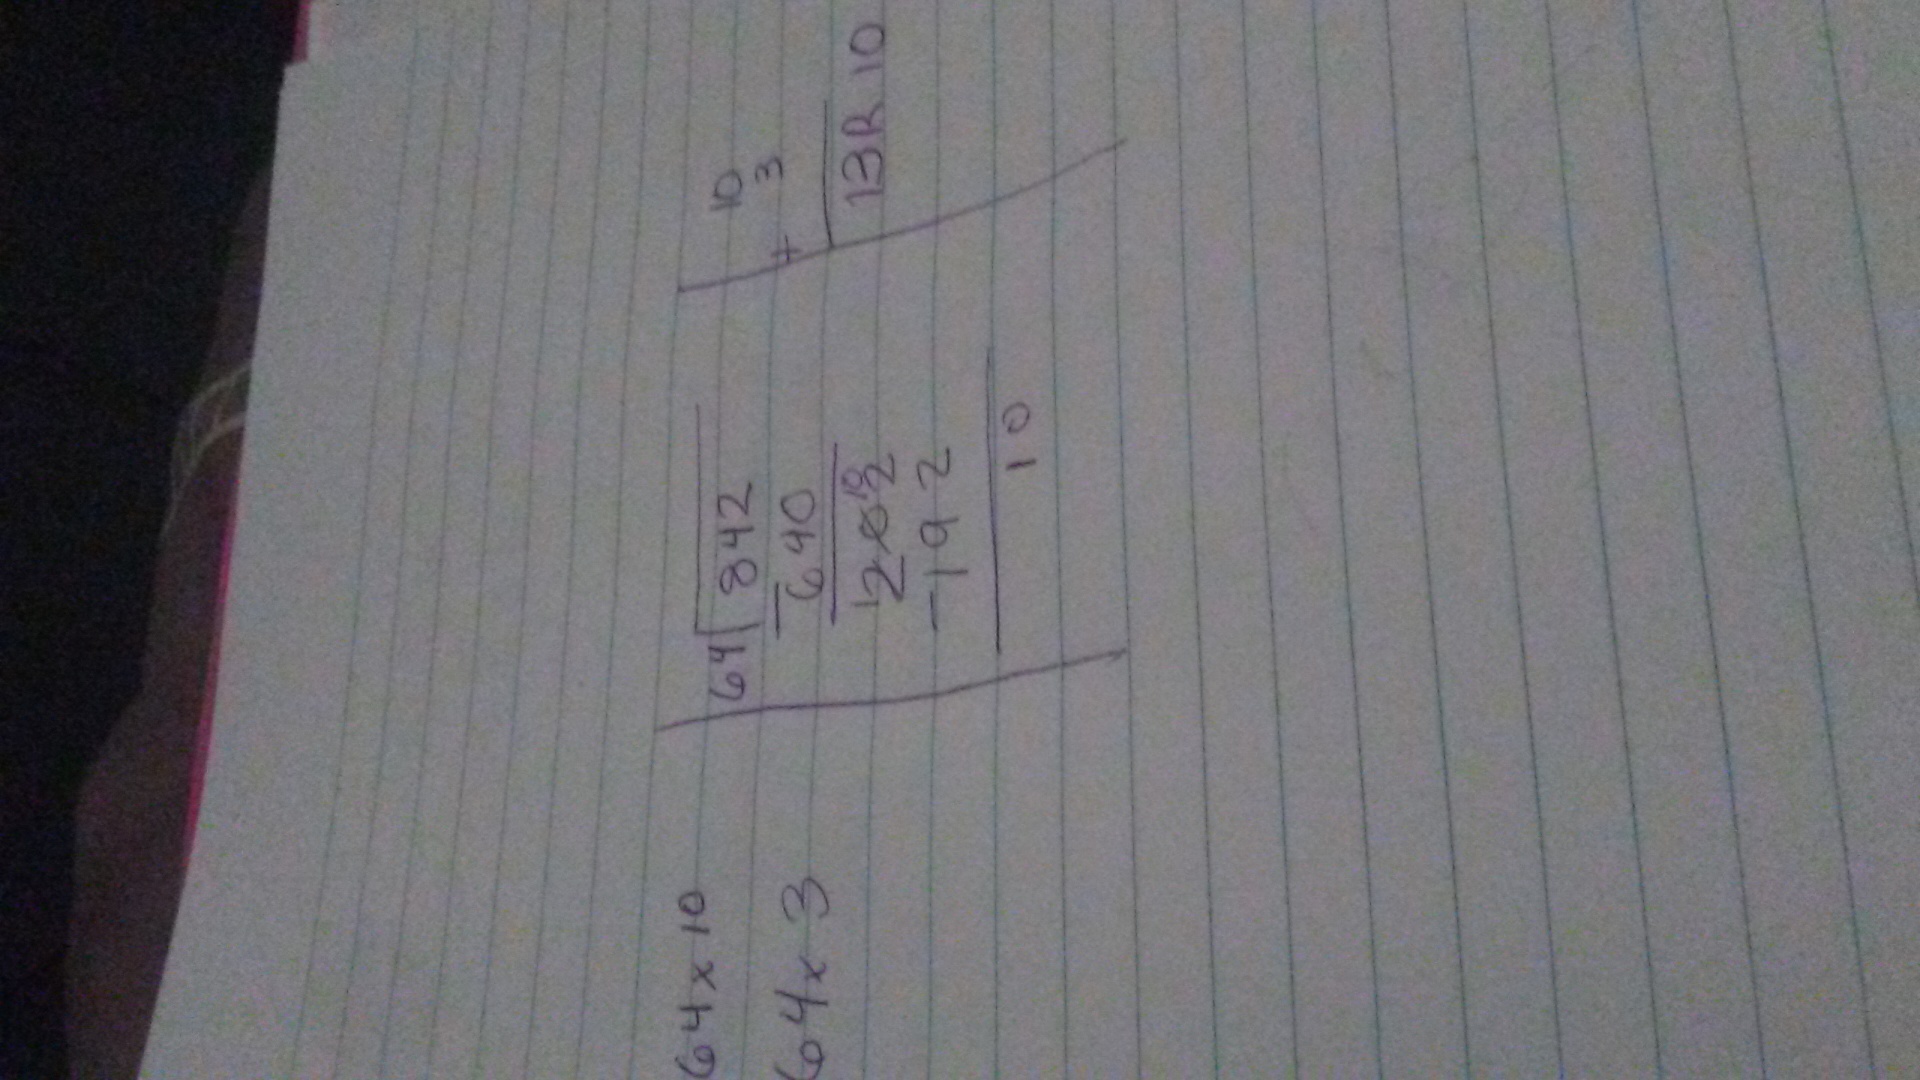 64 x 10
64 x 3
64 842
- 640
202
- 192
10
10
+ 3
13 R 10